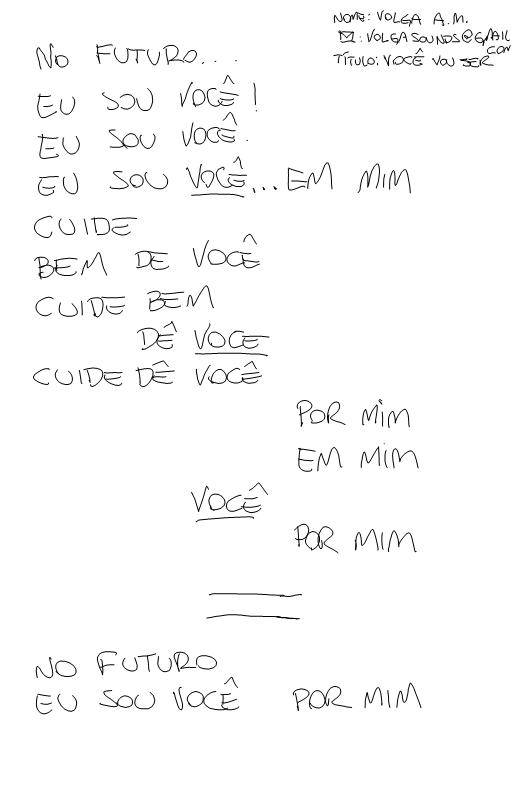 NOME: VOLGA A.M.
: VOLGASOUNDS@GMAIL
COM
TÍTULO: VOCÊ VOU SER
NO FUTURO...
EU SOU VOCÊ!
EU SOU VOCÊ.
EU SOU VOCÊ... EM MIM
CUIDE
BEM DE VOCÊ
CUIDE BEM
DÊ VOCE
CUIDE DÊ VOCÊ
POR MIM
EM MIM
VOCÊ
POR MIM
NO FUTURO
EU SOU VOCÊ POR MIM